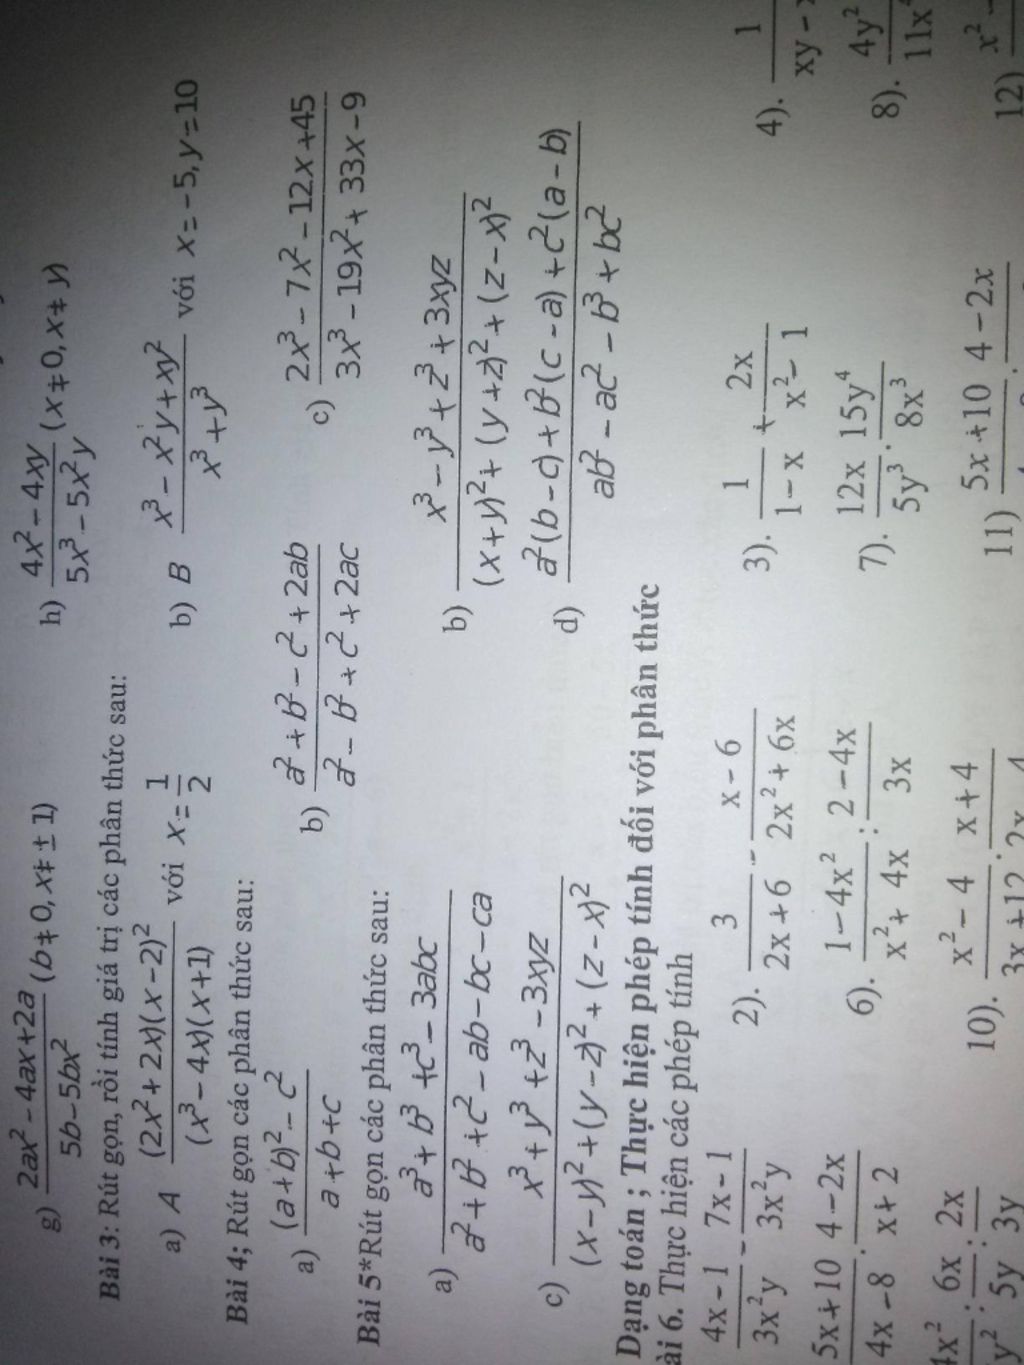 g) \frac{2ax^2-4ax+2a}{5b-5bx^2} (b≠0, x≠±1) h) \frac{4x^2-4xy}{5x^3-5x^2y} (x≠0, x≠y)
Bài 3: Rút gọn, rồi tính giá trị các phân thức sau:
a) A \frac{(2x^2+2x)(x-2)^2}{(x^3-4x)(x+1)} với x=\frac{1}{2} b) B \frac{x^3-x^2y+xy^2}{x^3+y^3} với x=-5, y=10
Bài 4; Rút gọn các phân thức sau:
a) \frac{(a+b)^2-c^2}{a+b+c} b) \frac{a^2+b^2-c^2+2ab}{a^2-b^2+c^2+2ac} c) \frac{2x^3-7x^2-12x+45}{3x^3-19x^2+33x-9}
Bài 5*Rút gọn các phân thức sau:
a) \frac{a^3+b^3+c^3-3abc}{a^2+b^2+c^2-ab-bc-ca} b) \frac{x^3-y^3+z^3+3xyz}{(x+y)^2+(y+z)^2+(z-x)^2}
c) \frac{x^3+y^3+z^3-3xyz}{(x-y)^2+(y-z)^2+(z-x)^2} d) \frac{a^2(b-c)+b^2(c-a)+c^2(a-b)}{ab^2-ac^2-b^3+bc^2}
Dạng toán ; Thực hiện phép tính đối với phân thức
ài 6. Thực hiện các phép tính
\frac{4x-1}{3x^2y} - \frac{7x-1}{3x^2y} 2). \frac{3}{2x+6} - \frac{x-6}{2x^2+6x} 3). \frac{1}{1-x} + \frac{2x}{x^2-1} 4). \frac{1}{xy-}
\frac{5x+10}{4x-8} . \frac{4-2x}{x+2} 6). \frac{1-4x^2}{x^2+4x} : \frac{2-4x}{3x} 7). \frac{12x}{5y^3} . \frac{15y^4}{8x^3} 8). \frac{4y^2}{11x}
\frac{x^2}{y^2} : \frac{6x}{5y} : \frac{2x}{3y} 10). \frac{x^2-4}{3x+12} . \frac{x+4}{2x} 11) 5x+10 4-2x 12) x^2-